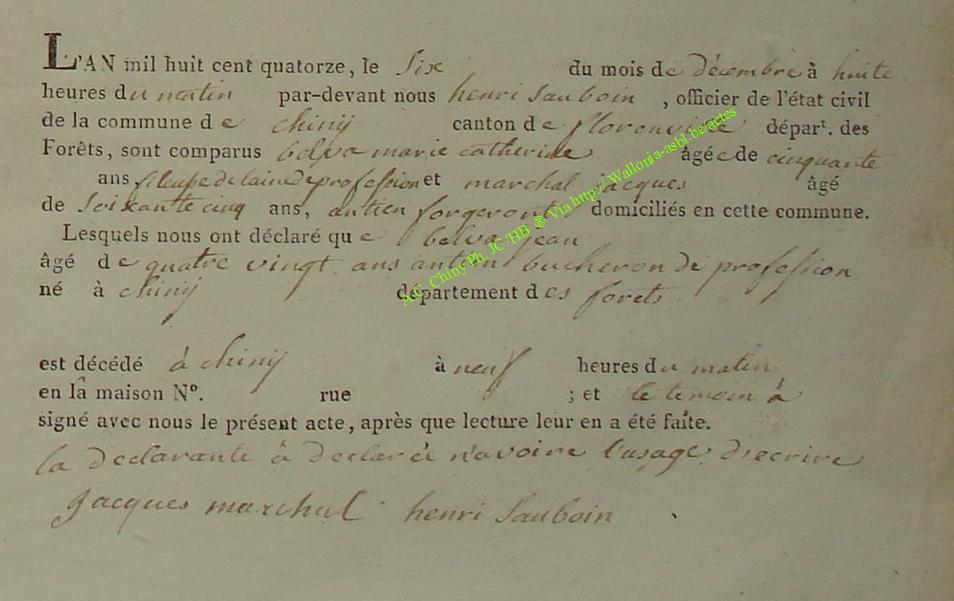 L'AN mil huit cent quatorze, le Six du mois de décembre à huite
heures du matin par-devant nous henri Sauboin , officier de l'état civil
de la commune de chiny canton de florenville départ. des
Forêts, sont comparus belva marie catherine âgée de cinquante
ans fileuse de laine de profession et marchal jacques âgé
de Soixante cinq ans, antien forgeront domiciliés en cette commune.
Lesquels nous ont déclaré que belva jean
âgé de quatre vingt ans antien bucheron de profession
né à chiny département des forets
est décédé à chiny à neuf heures du matin
en la maison N°. rue ; et le temoin à
signé avec nous le présent acte, après que lecture leur en a été faite.
la declarante à declaréé n'avoire l'usage d'ecrire
jacques marchal henri Sauboin
A.G. Chiny Ph. JC HB ® Via http://Wallonia-asbl.be/actes